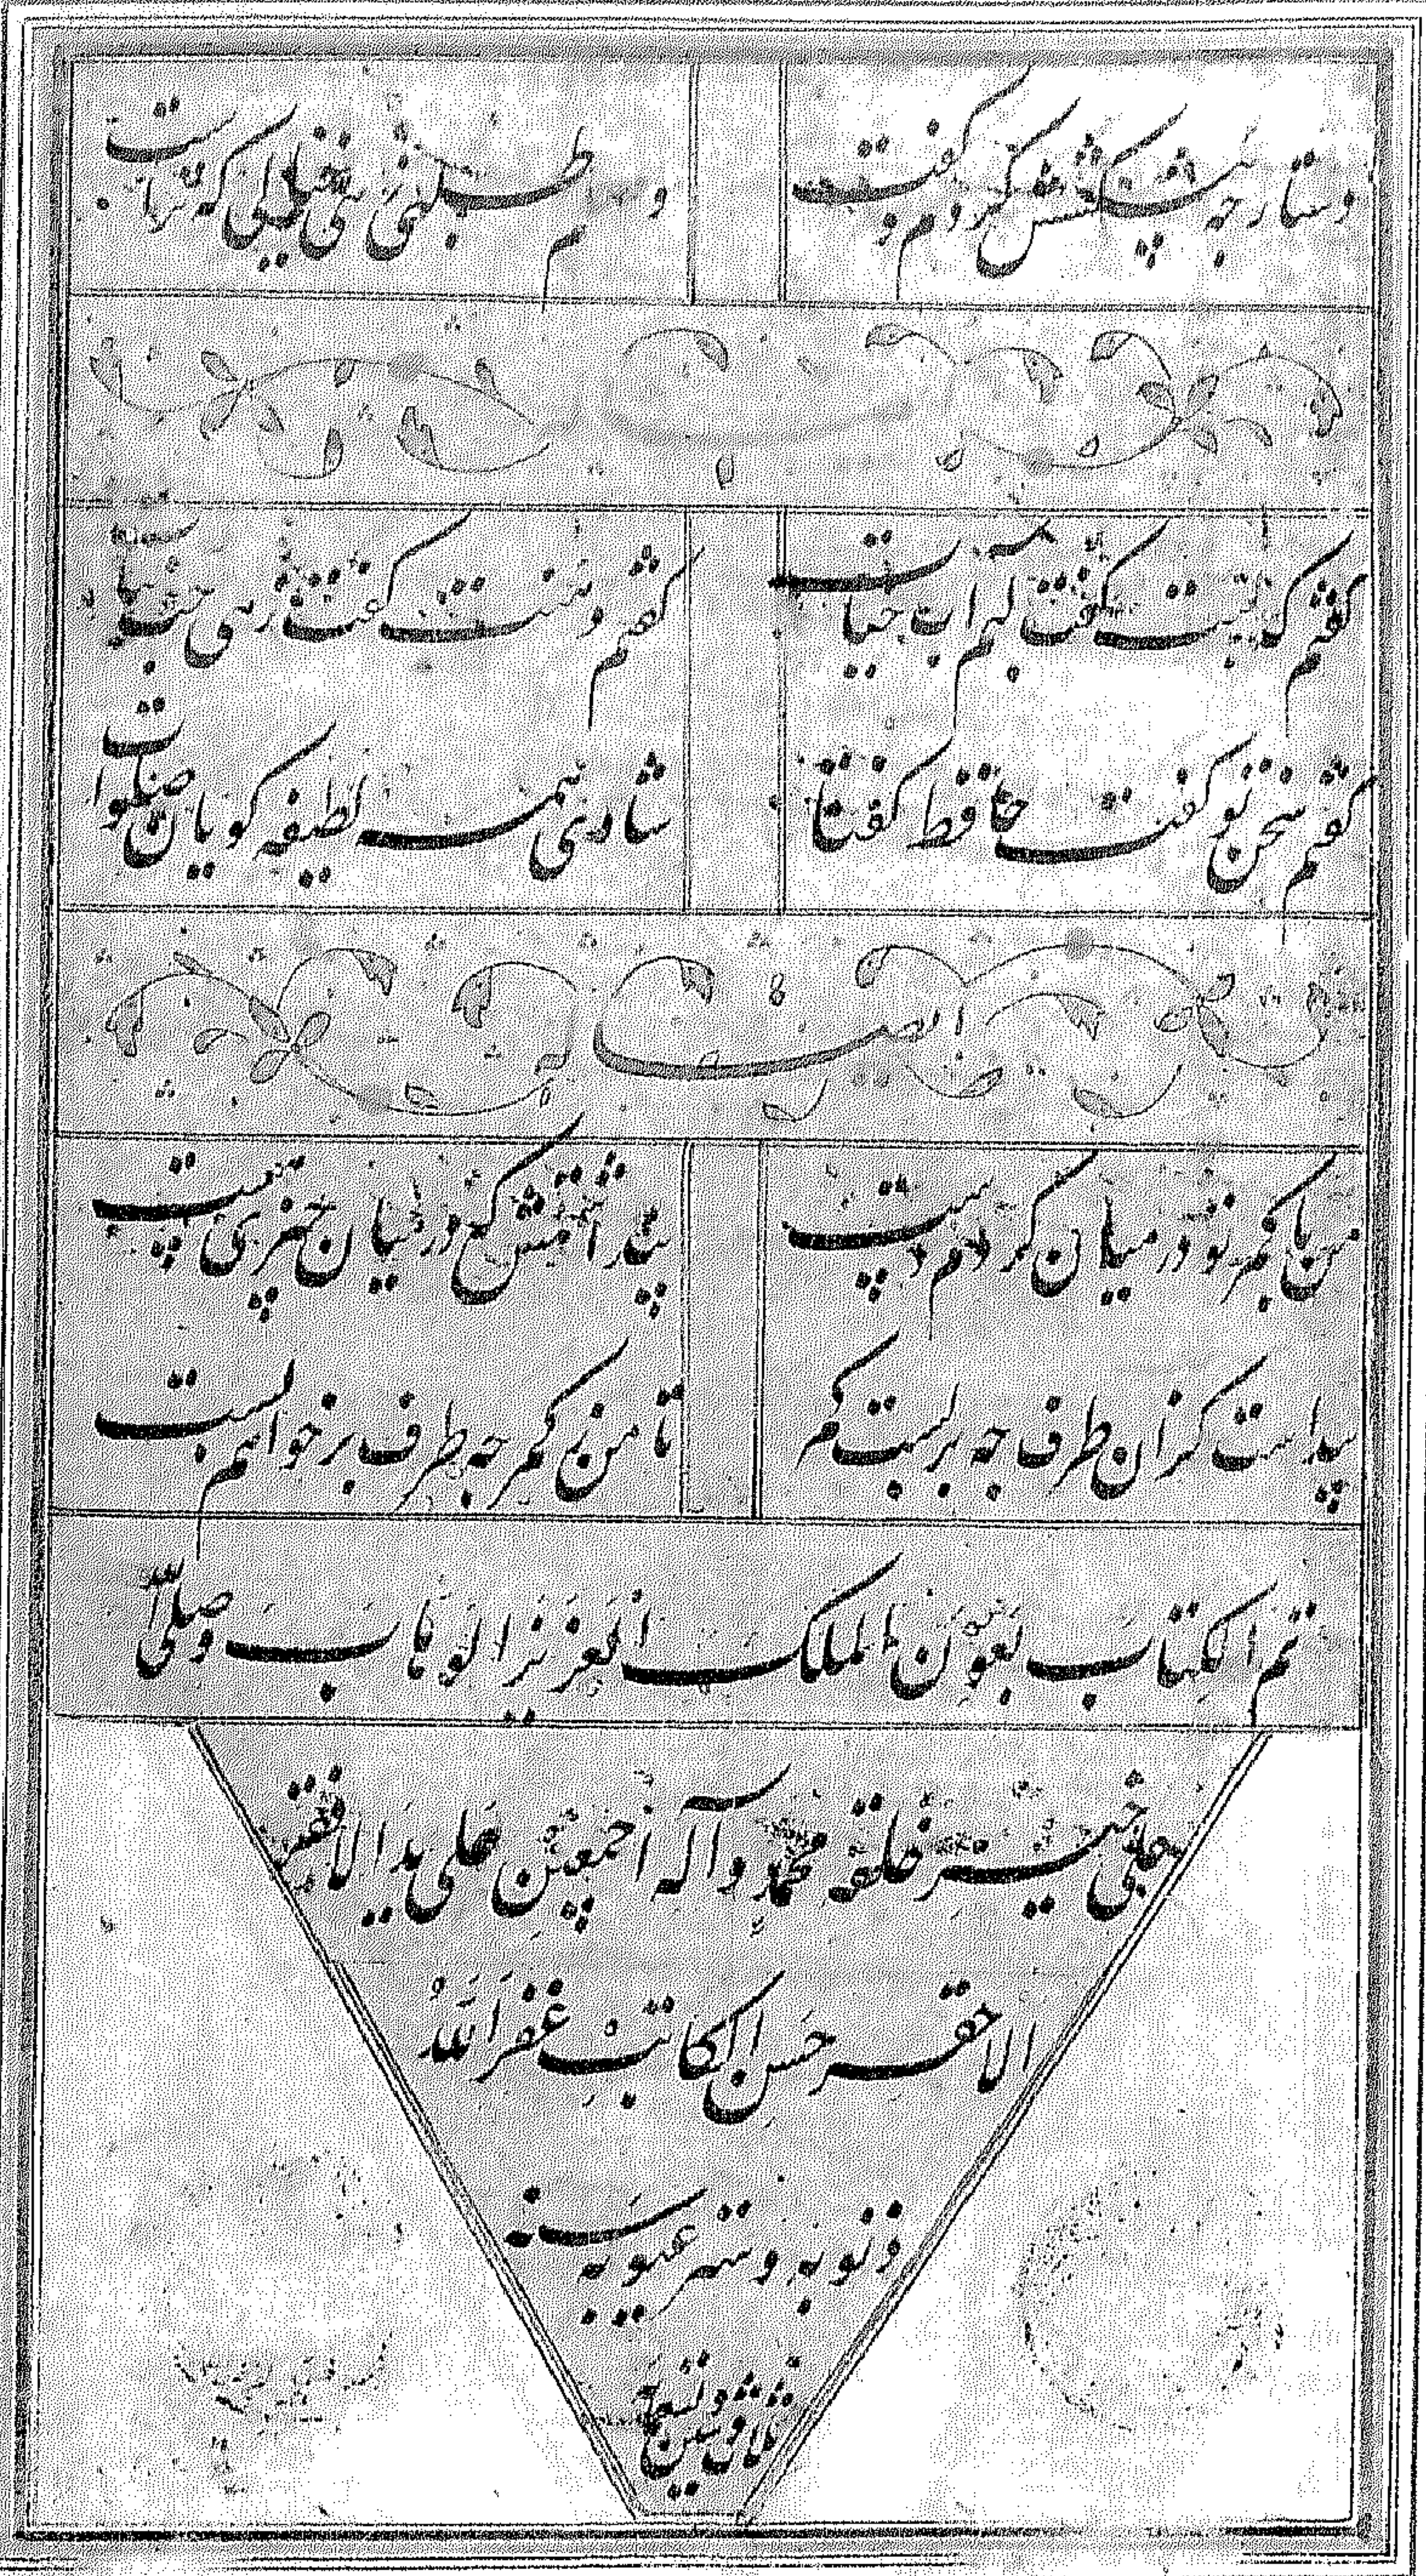 دستارچه پیشکشش کردم گفت
وصلم طلبی زهی خیالی که تراست
گفتم که لبت گفت لبم آب حیات
گفتم دهنت گفت زهی حب نبات
گفتم سخن تو گفت حافظ گفتا
شادی همه لطیفه گویان صلوات
من با کمر تو در میان کردم دست
پنداشتمش که در میان چیزی هست
پیداست کزان طرف چه بربست کمر
تا من ز کمر چه طرف بر خواهم بست
تم الکتاب بعون الملک العزیز الوهاب وصلی الله
علی خیر خلقه محمد وآله اجمعین علی ید الافقر
الاحقر حسن الکاتب غفر الله
ذنوبه وستر عیوبه سنه
ثلاث وستین